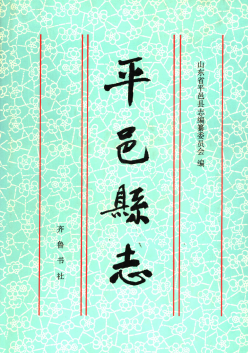 山东省平邑县志编纂委员会 编
平邑縣志
齐鲁书社